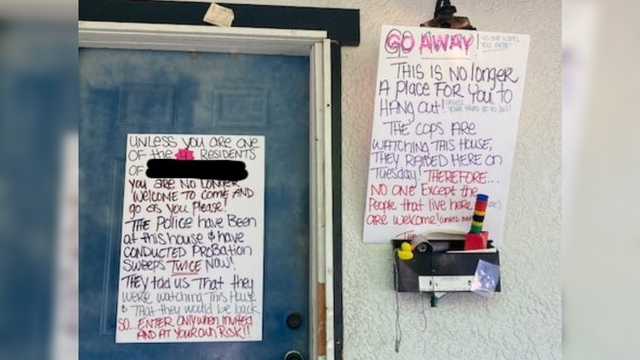 UNLESS YOU ARE ONE
OF the 4 RESIDENTS
OF
YOU ARE NO LONGER
WELCOME TO COME AND
GO AS YOU PLEASE!
THE POLICE HAVE BEEN
at this house & have
CONDUCTED PROBATION
SWEEPS TWICE NOW!
THEY told US That they
were watching This House
& That they would be back
SO... ENTER ONLY WHEN INVITED
AND AT YOUR OWN RISK!!
GO AWAY!
THIS IS NO longer
A PLACE FOR YOU TO
HANG OUT!
THE COPS ARE
WATCHING THIS HOUSE,
THEY RAIDED HERE ON
TUESDAY! THEREFORE...
NO ONE EXCEPT the
People that live here
are welcome!